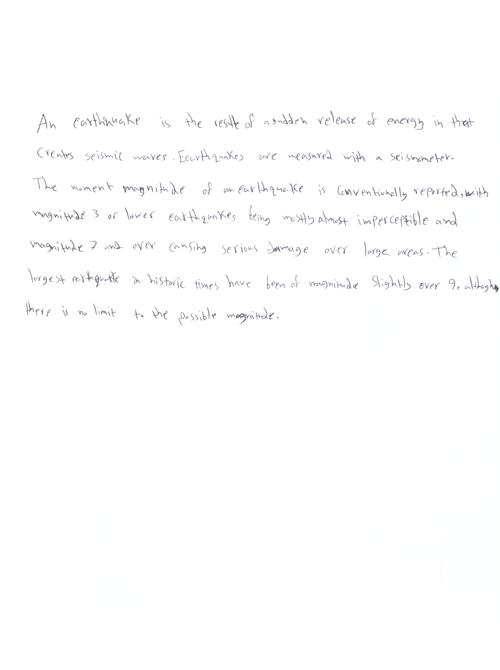 An earthquake is the result of a sudden release of energy in that
Creates seismic waves. Earthquakes are measured with a seismometer.
The moment magnitude of an earthquake is conventionally reported, with
magnitude 3 or lower earthquakes being mostly almost imperceptible and
magnitude 7 and over causing serious damage over large areas. The
largest earthquake in historic times have been of magnitude slightly over 9, although
there is no limit to the possible magnitude.